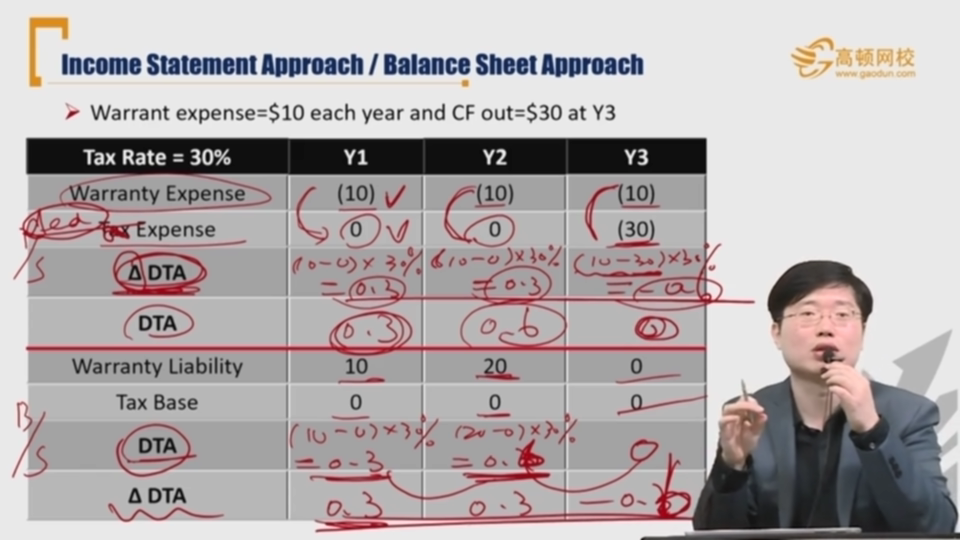 Income Statement Approach / Balance Sheet Approach
高顿网校
www.gaodun.com
Warrant expense=$10 each year and CF out=$30 at Y3
Tax Rate = 30% Y1 Y2 Y3
Warranty Expense (10) (10) (10)
Tax Expense 0 0 (30)
(10-0)×30% (10-0)×30% (10-30)×30%
Δ DTA =0.3 =0.3 =-0.6
DTA 0.3 0.6 0
I/S
Warranty Liability 10 20 0
Tax Base 0 0 0
B/S
(10-0)×30% (20-0)×30%
DTA =0.3 0
Δ DTA 0.3 0.3